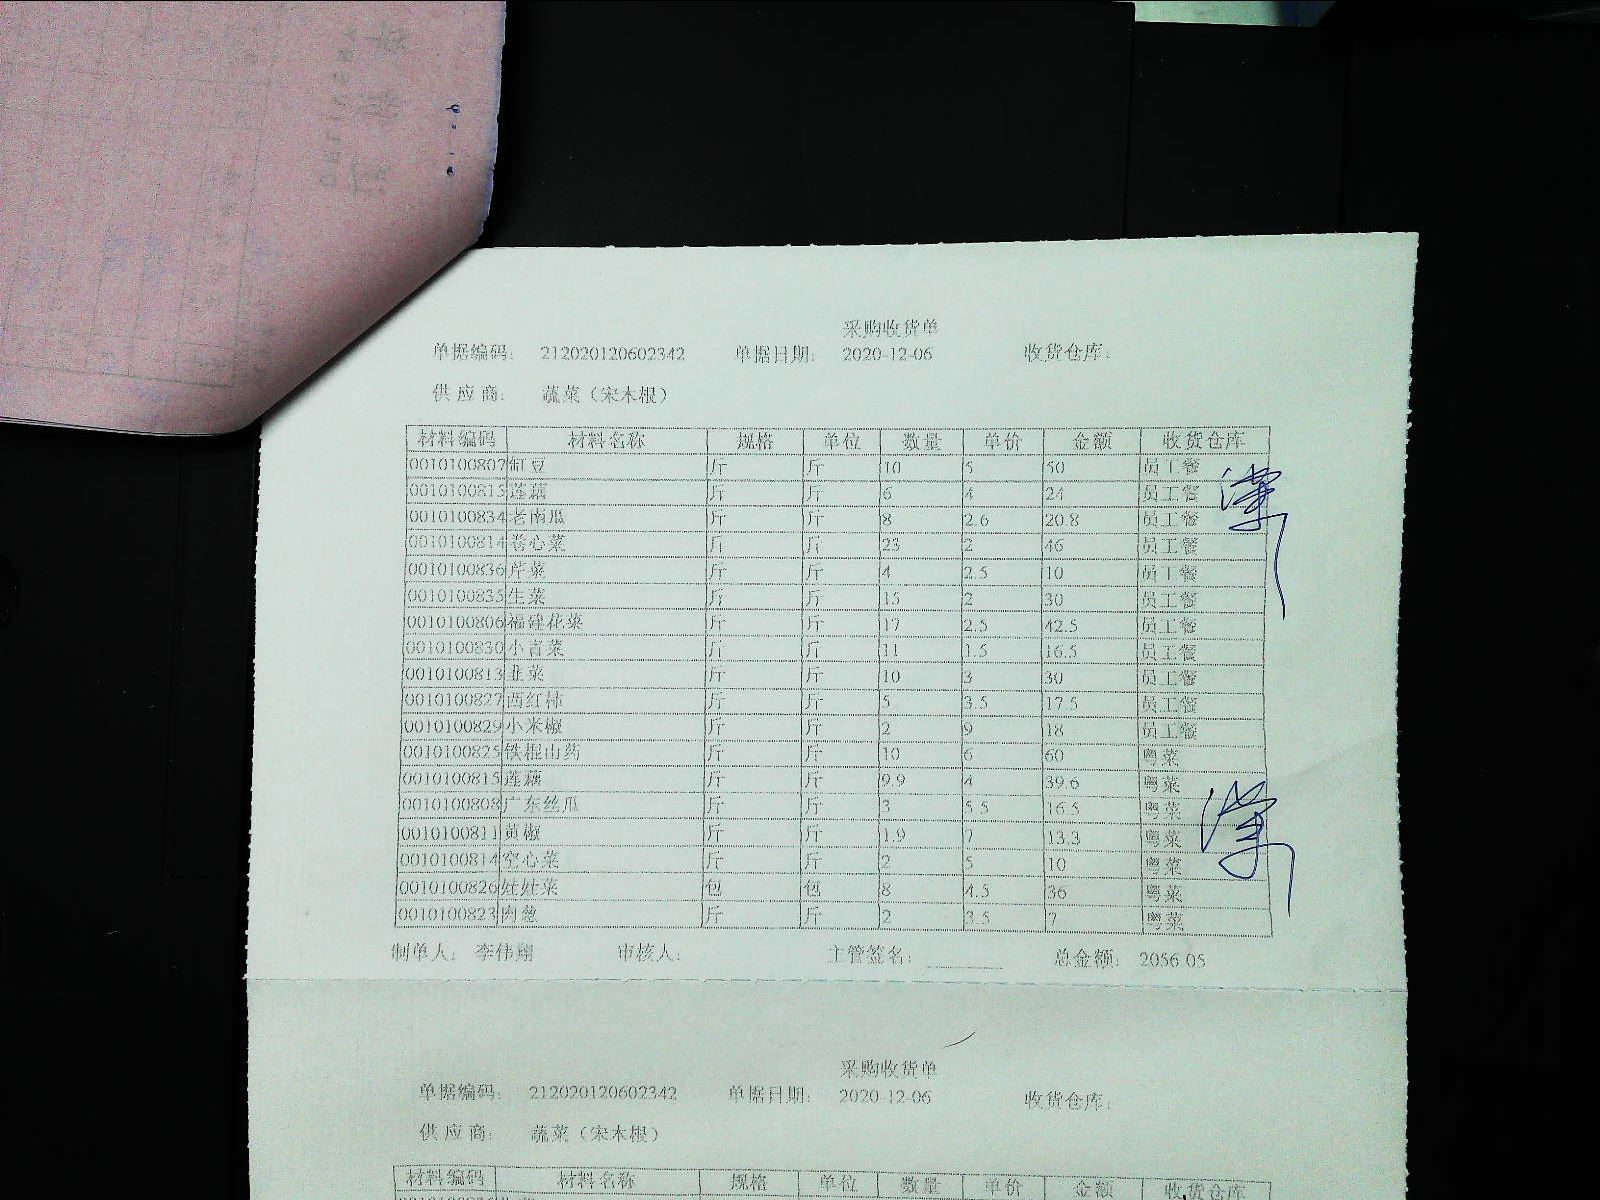 采购收货单
单据编码： 212020120602342 单据日期： 2020-12-06 收货仓库：
供应商： 蔬菜（宋木根）
材料编码 材料名称 规格 单位 数量 单价 金额 收货仓库
0010100807 缸豆 斤 斤 10 5 50 员工餐
0010100815 莲藕 斤 斤 6 4 24 员工餐
0010100834 老南瓜 斤 斤 8 2.6 20.8 员工餐
0010100814 卷心菜 斤 斤 23 2 46 员工餐
0010100836 芹菜 斤 斤 4 2.5 10 员工餐
0010100835 生菜 斤 斤 15 2 30 员工餐
0010100806 福建花菜 斤 斤 17 2.5 42.5 员工餐
0010100830 小青菜 斤 斤 11 1.5 16.5 员工餐
0010100813 韭菜 斤 斤 10 3 30 员工餐
0010100827 西红柿 斤 斤 5 3.5 17.5 员工餐
0010100829 小米椒 斤 斤 2 9 18 员工餐
0010100825 铁棍山药 斤 斤 10 6 60 粤菜
0010100815 莲藕 斤 斤 9.9 4 39.6 粤菜
0010100808 广东丝瓜 斤 斤 3 5.5 16.5 粤菜
0010100811 黄椒 斤 斤 1.9 7 13.3 粤菜
0010100814 空心菜 斤 斤 2 5 10 粤菜
0010100826 娃娃菜 包 包 8 4.5 36 粤菜
0010100823 肉葱 斤 斤 2 3.5 7 粤菜
制单人： 李伟翔 审核人： 主管签名： 总金额： 2056.05
采购收货单
单据编码： 212020120602342 单据日期： 2020-12-06 收货仓库：
供应商： 蔬菜（宋木根）
材料编码 材料名称 规格 单位 数量 单价 金额 收货仓库